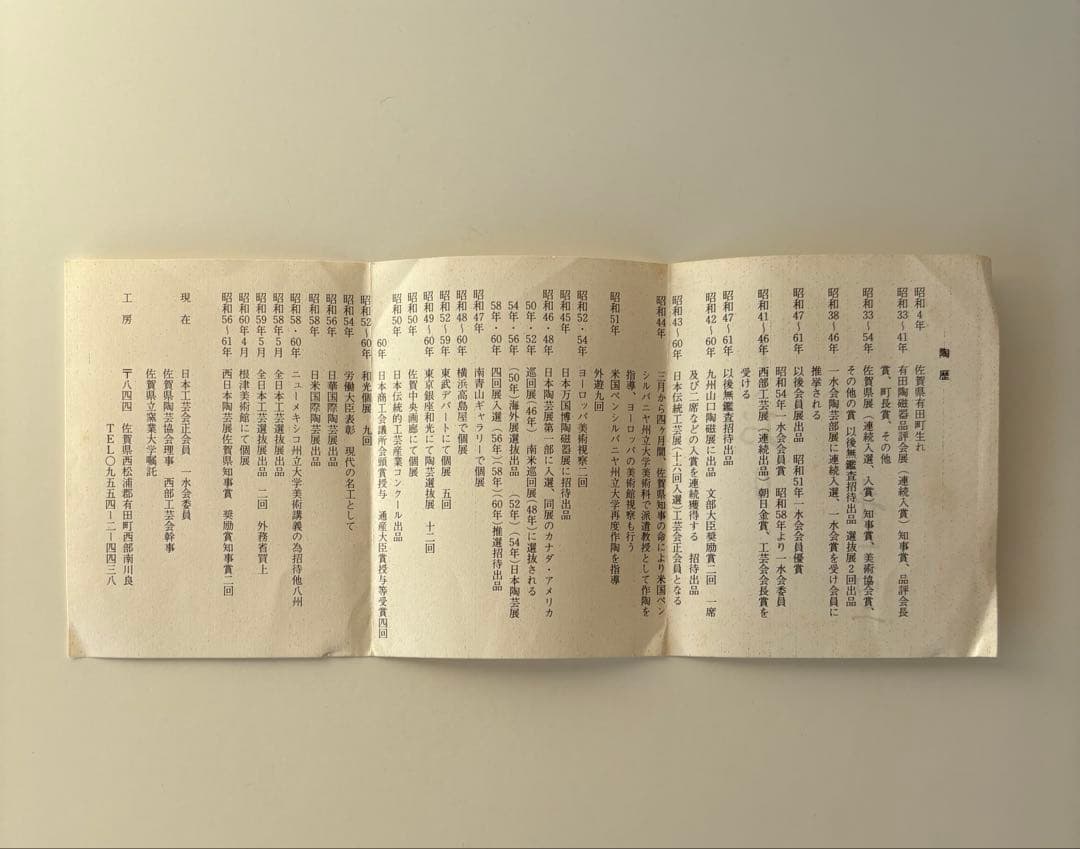 陶歴
昭和4年 佐賀県有田町生れ
昭和33〜41年 有田陶磁器品評会展（連続入賞）知事賞、品評会長
賞、町長賞、その他
昭和33〜54年 佐賀県展（連続入選、入賞）知事賞、美術協会賞、
その他の賞 以後無鑑査招待出品 選抜展2回出品
昭和38〜46年 一水会陶芸部展に連続入選、一水会賞を受け会員に
推挙される
昭和47〜61年 以後会員展出品 昭和51年一水会会員優賞
昭和54年一水会会員賞 昭和58年より一水会委員
昭和41〜46年 西部工芸展（連続出品）朝日金賞、工芸会会長賞を
受ける
昭和47〜61年 以後無鑑査招待出品
昭和42〜60年 九州山口陶磁展に出品 文部大臣奨励賞二回 一席
及び二席などの入賞を連続獲得する 招待出品
昭和43〜60年 日本伝統工芸展（十六回入選）工芸会正会員となる
昭和44年 三月から四ヶ月間、佐賀県知事の命により米国ペン
シルバニヤ州立大学美術科で派遣教授として作陶を
指導、ヨーロッパの美術館視察も行う
昭和51年 米国ペンシルバニヤ州立大学再度作陶を指導
外遊九回
昭和52・54年 ヨーロッパ美術視察二回
昭和45年 日本万国博陶磁器展に招待出品
昭和46・48年 日本陶芸展第一部に入選、同展のカナダ・アメリカ
50年・52年 巡回展（46年）南米巡回展（48年）に選抜される
54年・56年 （50年）海外展選抜出品 （52年）（54年）日本陶芸展
58年・60年 四回展入選（56年）（58年）（60年）推選招待出品
昭和47年 南青山ギャラリーで個展
昭和48〜60年 横浜高島屋で個展
昭和52〜59年 東武デパートにて個展 五回
昭和49〜60年 東京銀座和光にて陶芸選抜展 十二回
昭和50年 佐賀中央画廊にて個展
昭和50年 日本伝統的工芸産業コンクール出品
60年 日本商工会議所会頭賞授与 通産大臣賞授与等受賞四回
昭和52〜60年 和光個展 九回
昭和54年 労働大臣表彰 現代の名工として
昭和56年 日華国際陶芸展出品
昭和58年 日米国際陶芸展出品
昭和58・60年 ニューメキシコ州立大学美術講義の為招待他八州
昭和58年5月 全日本工芸選抜展出品
昭和59年5月 全日本工芸選抜展出品 二回 外務省買上
昭和60年4月 根津美術館にて個展
昭和56〜61年 西日本陶芸展佐賀県知事賞 奨励賞知事賞二回
現在 日本工芸会正会員 一水会委員
佐賀県陶芸協会理事 西部工芸会幹事
佐賀県立窯業大学嘱託
工房 〒八四四 佐賀県西松浦郡有田町西部南川良
TEL〇九五五四-二-四四三八